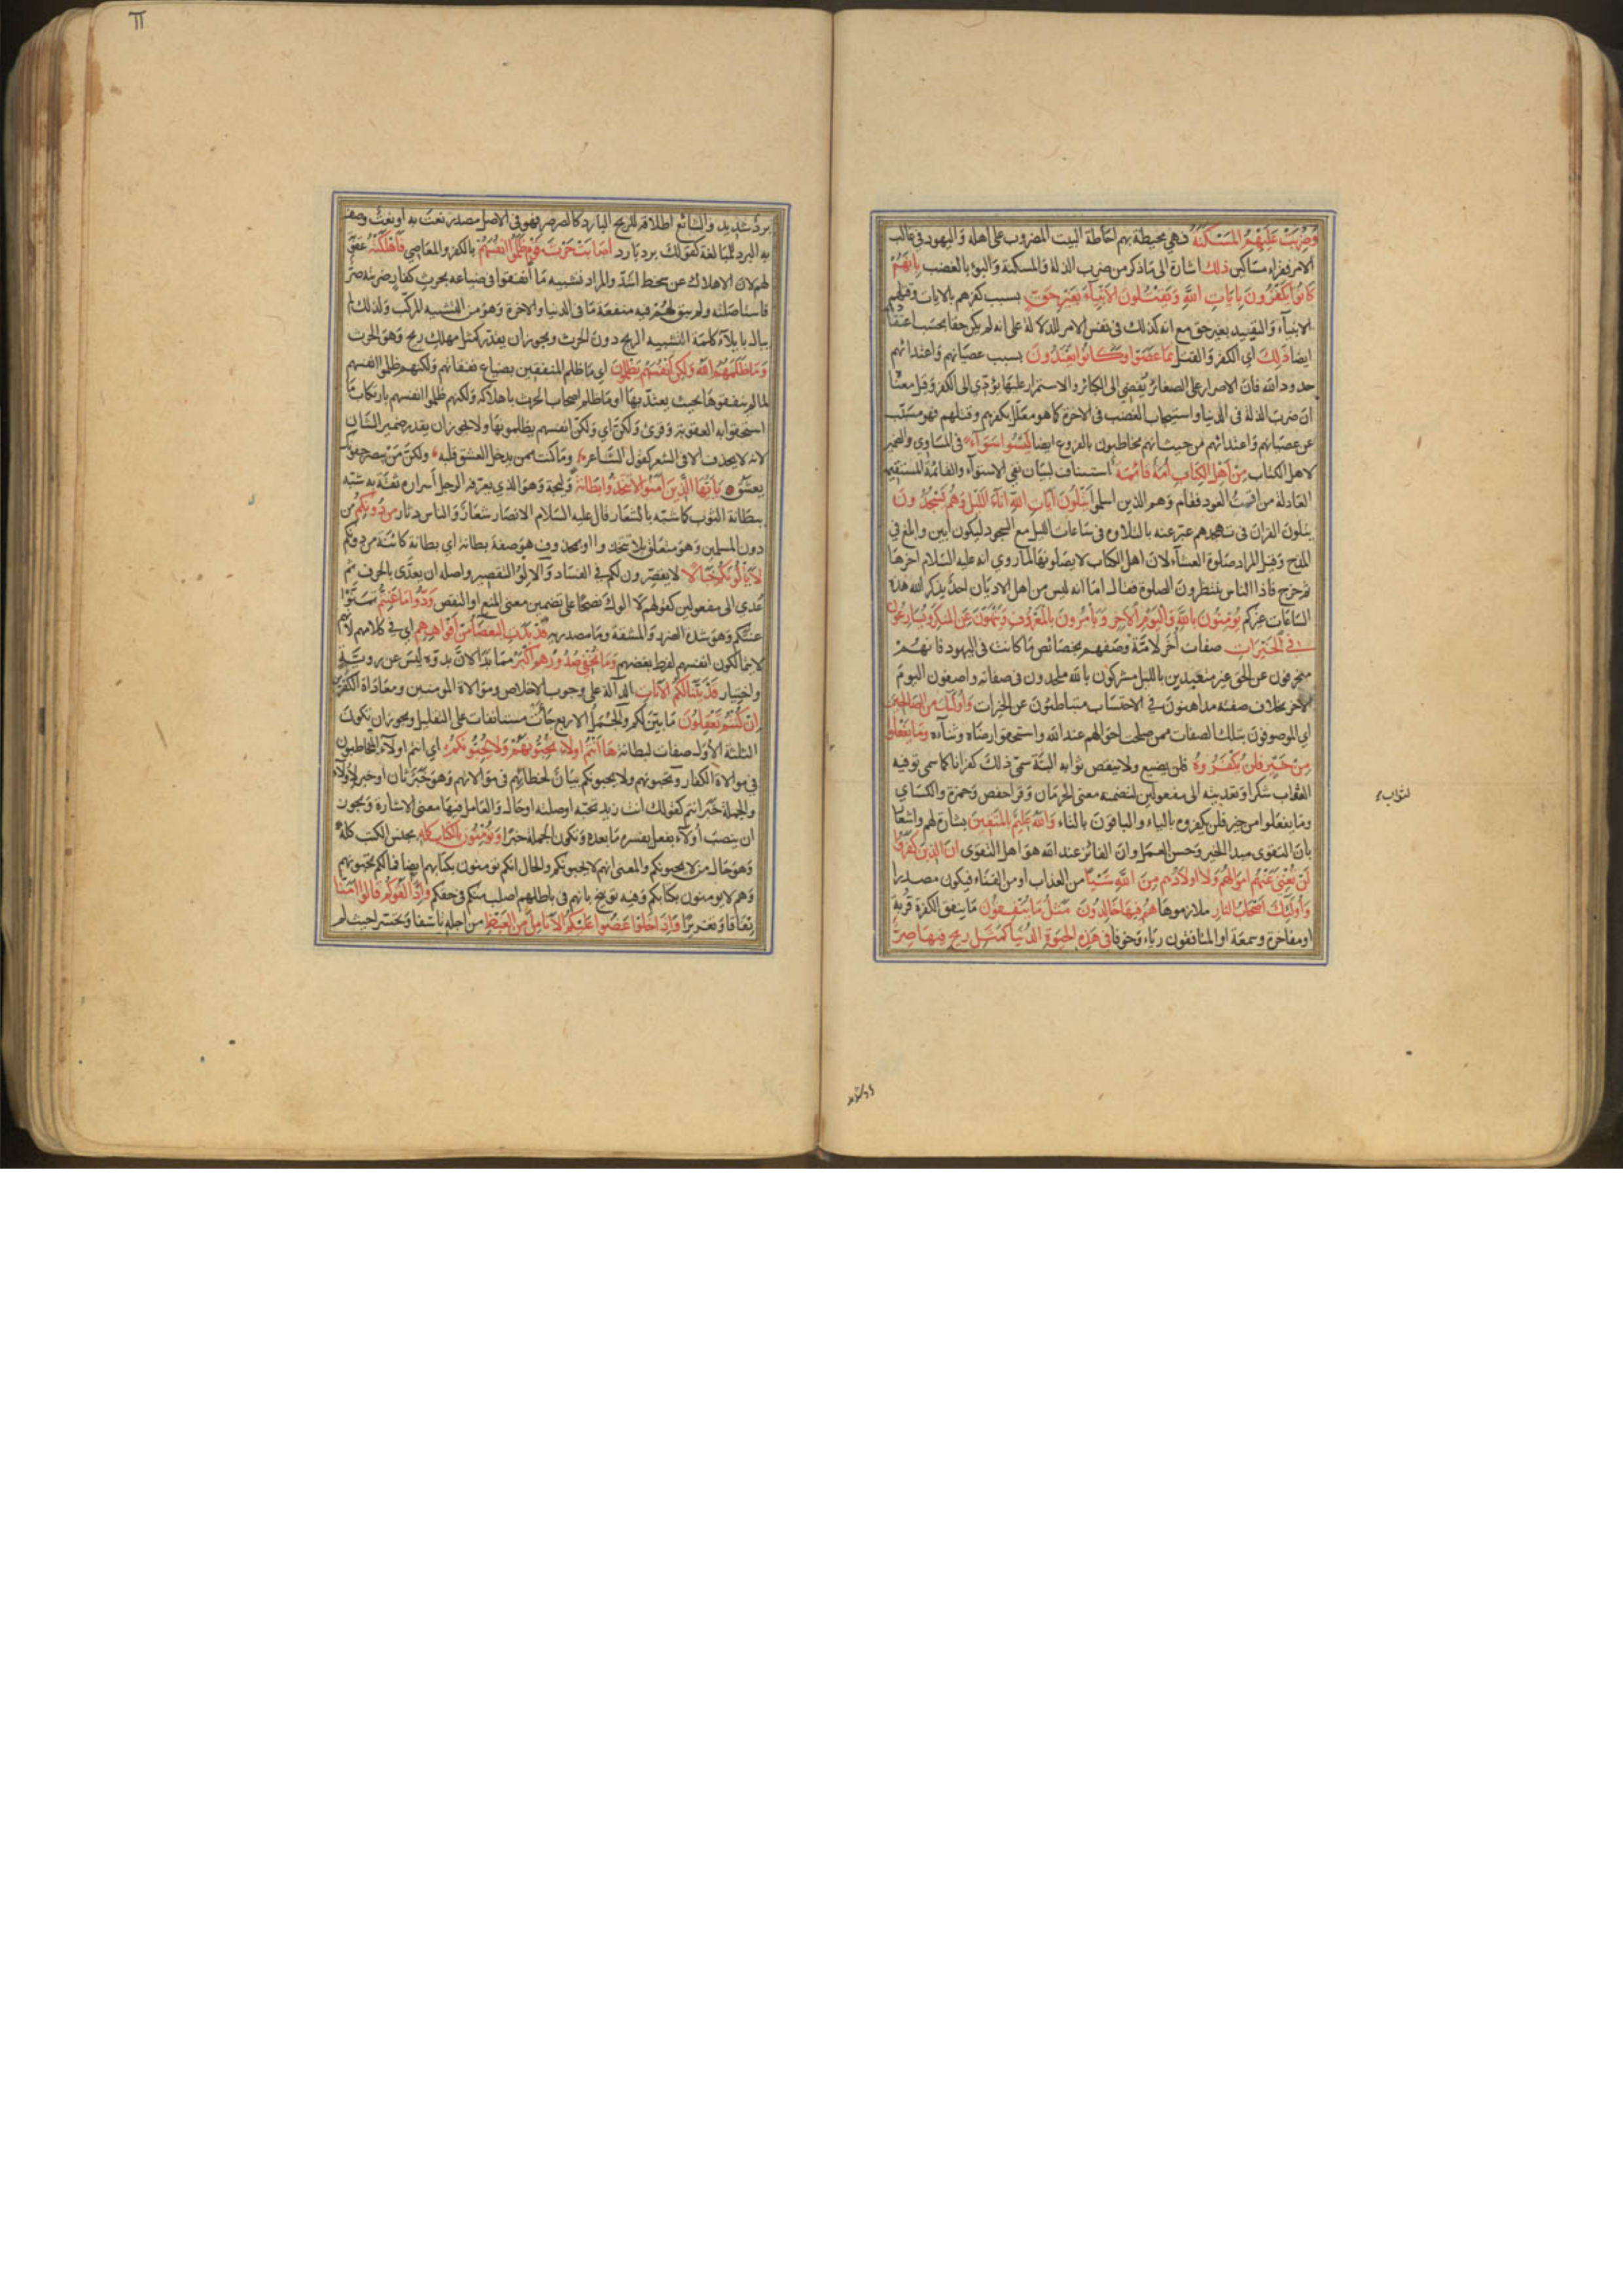 وَضُرِبَتْ عَلَيْهِمُ المَسْكَنَةُ فهي محيطة بهم احاطة البيت المضروب على اهله وَاليهود في غالب
الامر فقراء مسَاكين ذلك اشارة الى مَا ذكر من ضرب الذلة وَالمسكنة وَالبوء بالغضب بِاَنَّهُمْ
كَانُوا يَكْفُرُونَ بِايَاتِ اللَّهِ وَيَقْتُلُونَ الاَنْبِيَآءَ بِغَيْرِ حَقٍّ بسبب كفرهم بالايات وقتلهم
الانبيآء وَالتقييد بغير حق مع انه كذلك في نفس الامر للدلالة على انه لم يكن حقا بحسب اعتقا
ايضا ذلِكَ اي الكفر وَالقتل بِمَا عَصَوا وَكَانُوا يَعْتَدُونَ بسبب عصيَانهم وَاعتدائهم
حدود الله فان الاصرار على الصغائر يُفضي الى الكبائر والاستمرار عليهَا يؤدّي الى الكفر وَقيل معنَا
ان ضرب الذلة في الدنيا واستيجاب الغضب في الاخرة كما هو معلّل بكفرهم وقتلهم فهو مسَبّب
عن عصيَانهم وَاعتدائهم من حيث انهم مخاطبون بالفروع ايضا لَيْسُوا سَوَآءً في المسَاوي والضمير
لاهل الكتاب مِنْ اَهْلِ الكِتَابِ اُمَّةٌ قَائِمَةٌ استيناف لبيَان نفي الاستوآء والقائمَة المستقيمة
العَادلة من اقمتُ العود فقام وَهم الذين اسلموا يَتْلُونَ آيَاتِ اللّهِ آنَآءَ اللَّيْلِ وَهُمْ يَسْجُدُونَ
يتلون القران في تهجدهم عبّر عنه بالتلاوة في سَاعَات الليل مع السجود ليكون أبين وابلغ في
المدح وَقيل المراد صَلوة العشآء لان اهل الكتاب لا يصَلونهَا لما روي انه عليه السَّلام اخرهَا
ثم خرج فاذا الناس ينتظرون الصلوة فقال امَا انه ليس من اهل الاديَان احدٌ يذكر الله هذه
السَّاعَات غيركم يُؤْمِنُونَ بِاللَّهِ وَالْيَوْمِ الآخِرِ وَيَأمُرُونَ بِالْمَعْرُوفِ وَيَنْهَوْنَ عَنِ المُنْكَرِ وَيُسَارِعُونَ
فِي الْخَيْرَاتِ صفات اُخَر لاُمّة وَصَفهم بخصَائص مَا كانت في اليهود فانهُمْ
منحرفون عن الحق غير متعبدين بالليل مشركون بالله ملحدون في صفاته واصفون اليوم
الآخر بخلاف صفته مداهنون في الاحتسَاب متباطئون عن الخيرات وَاُولَئِكَ مِنَ الصَّالِحِينَ
اي الموصوفون بتلك الصفات ممن صلحت احوالهم عند الله واستحقوا رضَاه وثنآءه وَمَا يَفْعَلُوا
مِنْ خَيْرٍ فَلَنْ يُكْفَرُوهُ فلن يضيع ولا ينقص ثوابه البتّة سمّى ذلك كفرانا كما سمى توفيه
الثواب شكرا وَتعديته الى مفعولين لتضمنه معنى الحرمَان وَقرأ حفص وَحمزة والكسَاي
وَمَا يفعلوا من خير فلن يكفروه بالياء والباقون بالتاء وَاللَّهُ عَلِيمٌ بِالمُتَّقِينَ بشارة لهم واشعَا
بان التقوى مبدأ الخير وَحسن العَمَل وان الفائز عند الله هو اهل التقوى انَّ الّذِينَ كَفَرُوا
لَنْ تُغْنِيَ عَنْهُمْ اَمْوَالُهُمْ وَلا اَوْلاَدُهُمْ مِنَ اللَّهِ شَيْئًا من العذاب او من الغنَاء فيكون مصدرا
وَاُولَئِكَ اَصْحَابُ النَّارِ ملازموهَا هُمْ فِيهَا خَالِدُونَ مَثَلُ مَا يُنْفِقُونَ مَا ينفق الكفرة قُربة
او مفاخرة وسمعَة او المنافقون ريَاء وَخوفا فِي هَذِهِ الحَيَوةِ الدُّنْيَا كَمَثَلِ رِيحٍ فِيهَا صِرٌّ
بردٌ شديد والشائع اطلاقه للريح البارد كالصرصر فهو في الاصل مصدر نعت به او نعتٌ وصف
به البرد للمبَالغة كقولك برد بَارد اَصَابَتْ حَرْثَ قَوْمٍ ظَلَمُوا اَنْفُسَهُمْ بالكفر والمعَاصِي فَاَهْلَكَتْهُ عقوبة
لهم لان الاهلاك عن سخط اشدّ والمراد تشبيه مَا انفقوا في ضياعه بحرث كفار ضربته صرٌّ
فاستأصَلته ولم يبق لهُمْ فيه منفعَة مَا في الدنيا والاخرة وَهو من التشبيه المركّب وَلذلك لم
يبال بايلآء كلمة التشبيه الريح دون الحرث ويجوز ان يقدّر كمثل مهلك ريح وَهو الحرث
وَمَا ظَلَمَهُمُ اللّهُ وَلَكِنْ اَنْفُسَهُمْ يَظْلِمُونَ اي مَا ظلم المنفقين بضيَاع نفقاتهم وَلكنهم ظلموا انفسهم
لما لم ينفقوهَا بحيث يعتدّ بهَا او مَا ظلم اصحاب الحرث باهلاكه وَلكنهم ظلموا انفسهم بارتكاب مَا
استحقوا به العقوبة وَقرئ وَلكنّ اي وَلكنّ انفسهم يظلمونهَا ولا يجوز ان يقدر ضمير الشَّان
لانه لا يحذف الا في الشعر كقول الشاعر وَمَا كنت ممن يدخل العشق قلبه ولكنّ مَنْ يبصر جفونك
يعشَق يَا اَيُّهَا الَّذِينَ آمَنُوا لاَ تَتَّخِذُوا بِطَانَةً وَليجة وَهو الذي يعرّفه الرجل أسراره ثقة به شبّه
ببطَانة الثوب كما شبّه بالشعَار قال عليه السَّلام الانصَار شعَارٌ وَالناس دثار مِنْ دُونِكُمْ من
دون المسلمين وَهو متعلق بلا تتخذوا او بمحذوف هو صفة بطانة اي بطانة كائنَة من دونكم
لاَ يَأْلُونَكُمْ خَبَالاً لا يقصّرون لكم في الفسَاد وَالاَلْوُ التقصير واصله ان يعدّى بالحرف ثم
عُدي الى مفعولين كقولهم لا الوك نصحًا على تضمين معنى المنع او النقص وَدُّوا مَا عَنِتُّمْ تمنَّوْا
عنتكم وَهو شدة الضرر وَالمشقة وَمَا مصدرية قَدْ بَدَتِ البَغْضَآءُ مِنْ اَفْوَاهِهِمْ اي في كلامهم لانهم
لا يتمَالكون انفسهم لفرط بغضهم وَمَا تُخْفِي صُدُورُهُمْ اَكْبَرُ ممّا بَدَا لانّ بدوّه ليسَ عن رويّة
واختيار قَدْ بَيَّنَّا لَكُمُ الآيَاتِ الدآلّة على وجوب الاخلاص ومُوَالاة المؤمنين ومعَادَاة الكفرين
اِنْ كُنْتُمْ تَعْقِلُونَ مَا بيّنَ لكم والجُمَلُ الاربع جَاءَتْ مستانفات على التعليل ويجوز ان تكون
الثلثة الأوَل صفات لبطانة هَا اَنْتُمْ اُولاءِ تُحِبُّونَهُمْ وَلاَ يُحِبُّونَكُمْ اي انتم اولآء المخاطبون
في موالاة الكفار وتحبونهم ولا يحبونكم بيَانٌ لخطائهم في موَالاتهم وَهو خَبَرٌ ثان او خبر لاُولآء
والجملة خبَر انتم كقولك انت زيد تحبّه او صلته او حَال وَالعَامل فيهَا معنى الاشارة وَيجوز
ان ينصبَ اُولآء بفعل يفسره مَا بعده وَتكون الجملة خبرًا وَتُؤْمِنُونَ بِالكِتَابِ كُلِّهِ بجنس الكتب كلّه
وَهوَ حَال من لا يحبونكم والمعنى انهم لا يحبونكم والحال انكم تؤمنون بكتابهم ايضا فما لكم تحبّونهم
وَهم لا يومنون بكتابكم وَفيه توبيخ بانهم في باطلهم اصلب منكم في حقكم وَاِذَا لَقُوكُمْ قَالُوا آمَنَّا
نفَاقًا وَتغريرًا وَاِذَا خَلَوْا عَضُّوا عَلَيْكُمُ الاَنَامِلَ مِنَ الغَيْظِ من اجله تَاسّفا وَتحسّرا حيث لم